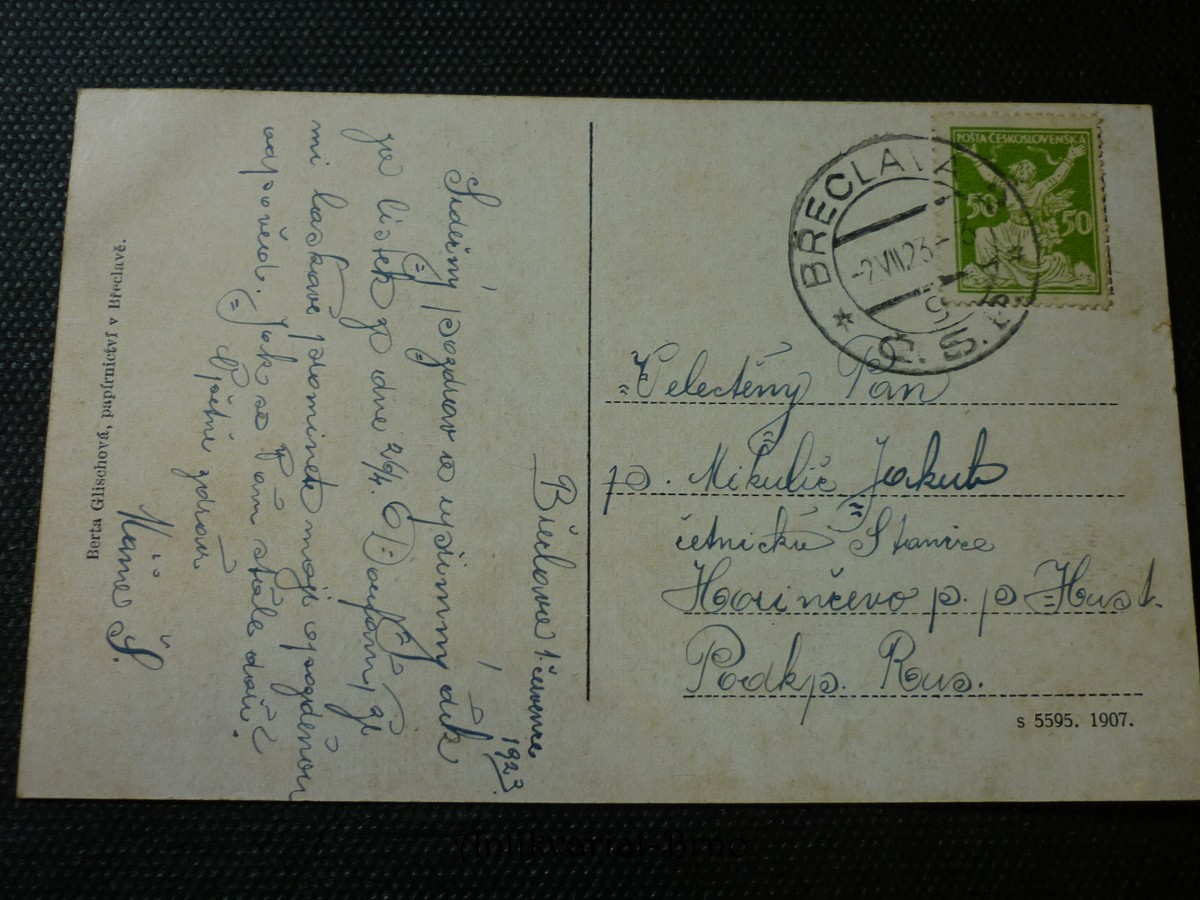 Břeclava 1. července
1923
Srdečný pozdrav a upřímný dík
za lístek ze dne 26/4. Doufám, že
mi laskavě prominete moji opozděnou
odpověď. Jak se Pám stále daří?
Zpětně zdraví
Máňa Š.
Berta Glischová, papírnictví v Břeclavě.
POŠTA ČESKOSLOVENSKÁ
50 50
BŘECLAV
-2.VII.23-
Č.S.R.
Velectěný Pan
p. Mikulič Jakub
četnická Stanice
Horinčevo p. p Hust.
Podkp. Rus.
s 5595. 1907.
Antikvariat-Brno